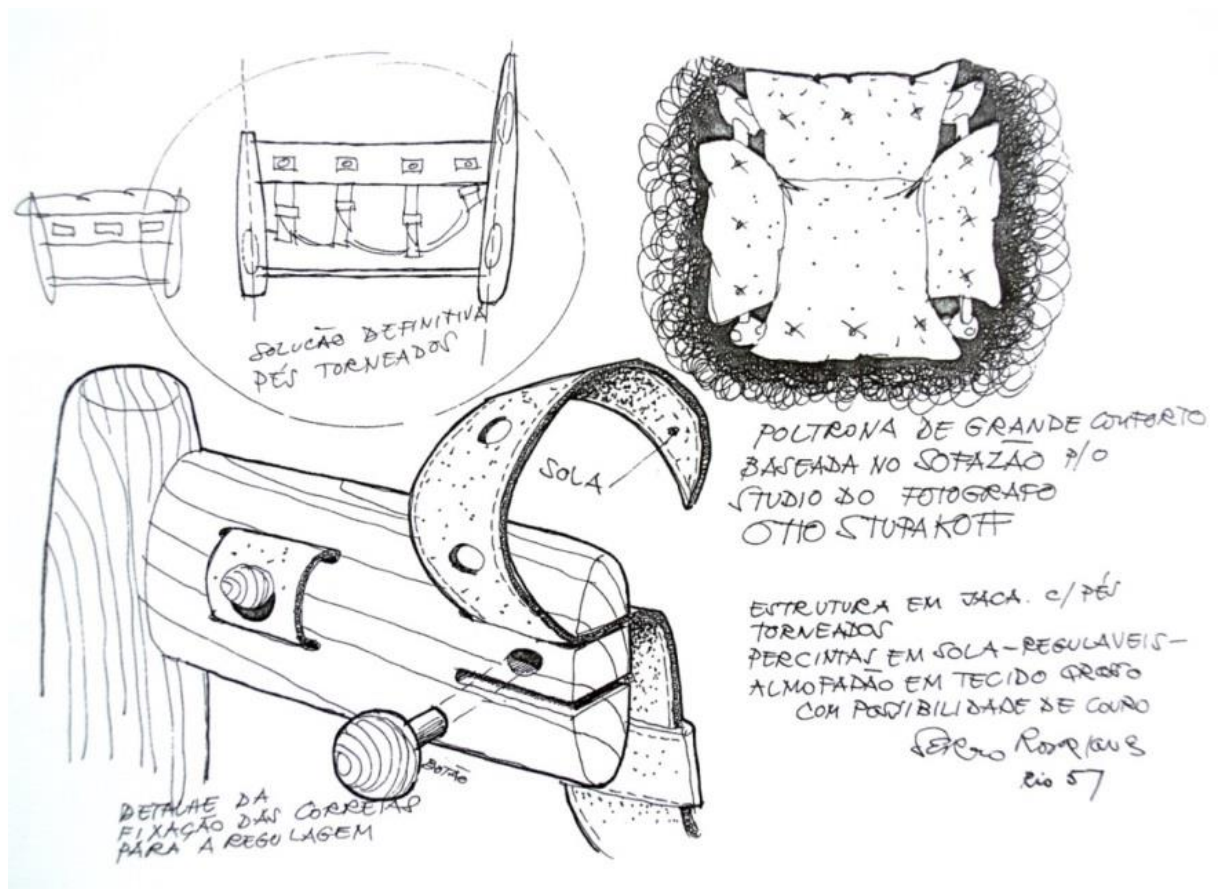 SOLUCÃO DEFINITIVA
PÉS TORNEADOS
SOLA
POLTRONA DE GRANDE CONFORTO
BASEADA NO SOFAZÃO P/O
STUDIO DO FOTOGRAFO
OTTO STUPAKOFF
ESTRUTURA EM JACA. C/ PÉS
TORNEADOS
PERCINTAS EM SOLA-REGULAVEIS-
ALMOFADÃO EM TECIDO GROSO
COM POSSIBILIDADE DE COURO
SERGIO RODRIGUES
Rio 57
BOTÃO
DETALHE DA
FIXAÇÃO DAS CORREIAS
PARA A REGULAGEM